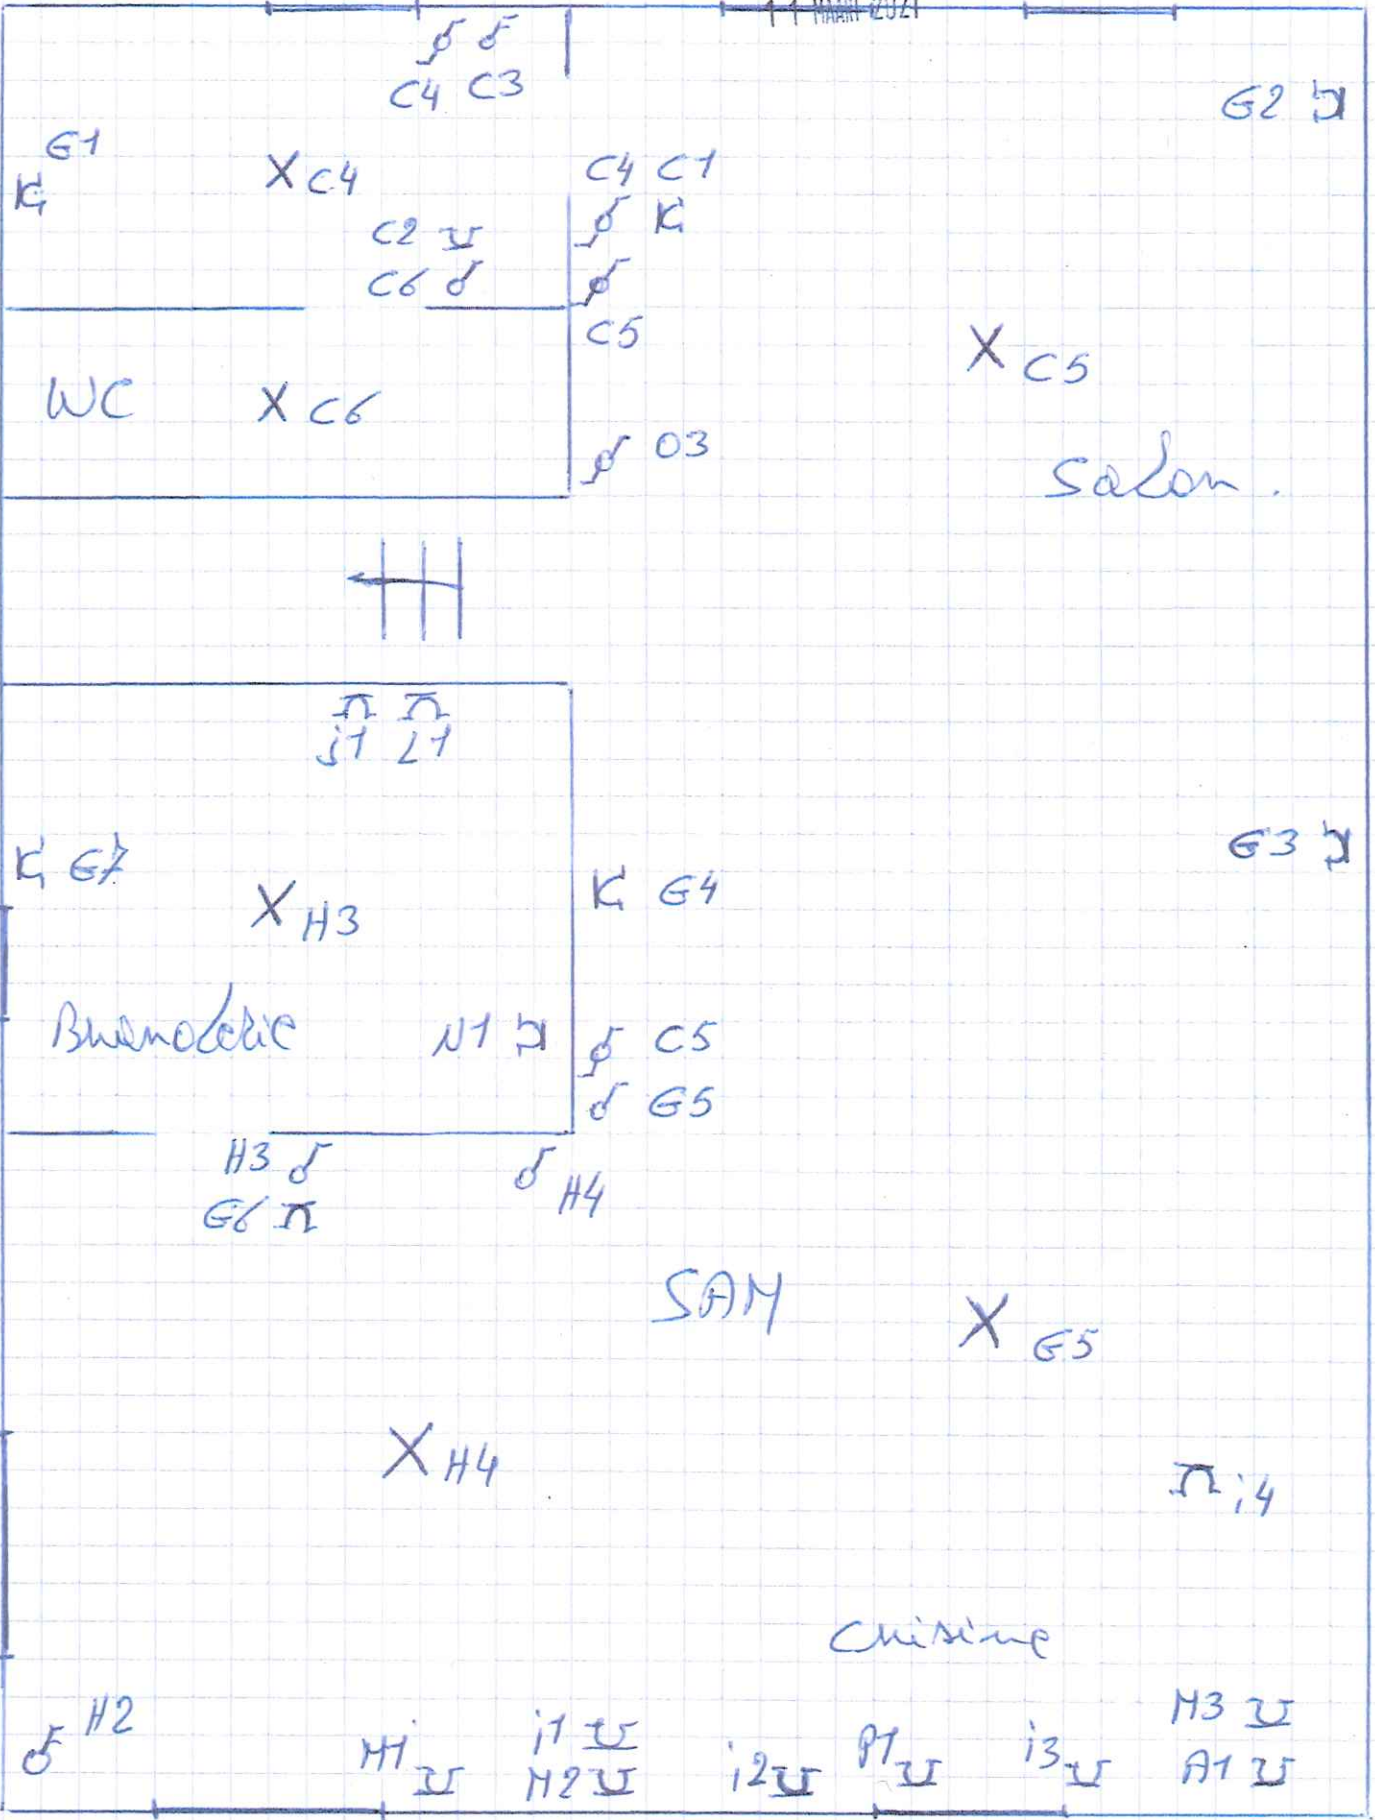 11 MAART 2021
C4 C3
G2
G1
C4
C4 C1
C2
C6
C5
C5
WC
C6
O3
Salon.
j1 L1
G7
G4
G3
H3
Buanderie
N1
C5
G5
H3
H4
G6
SAM
G5
H4
i4
Cuisine
H2
M1
i1
M2
i2
P1
i3
M3
A1